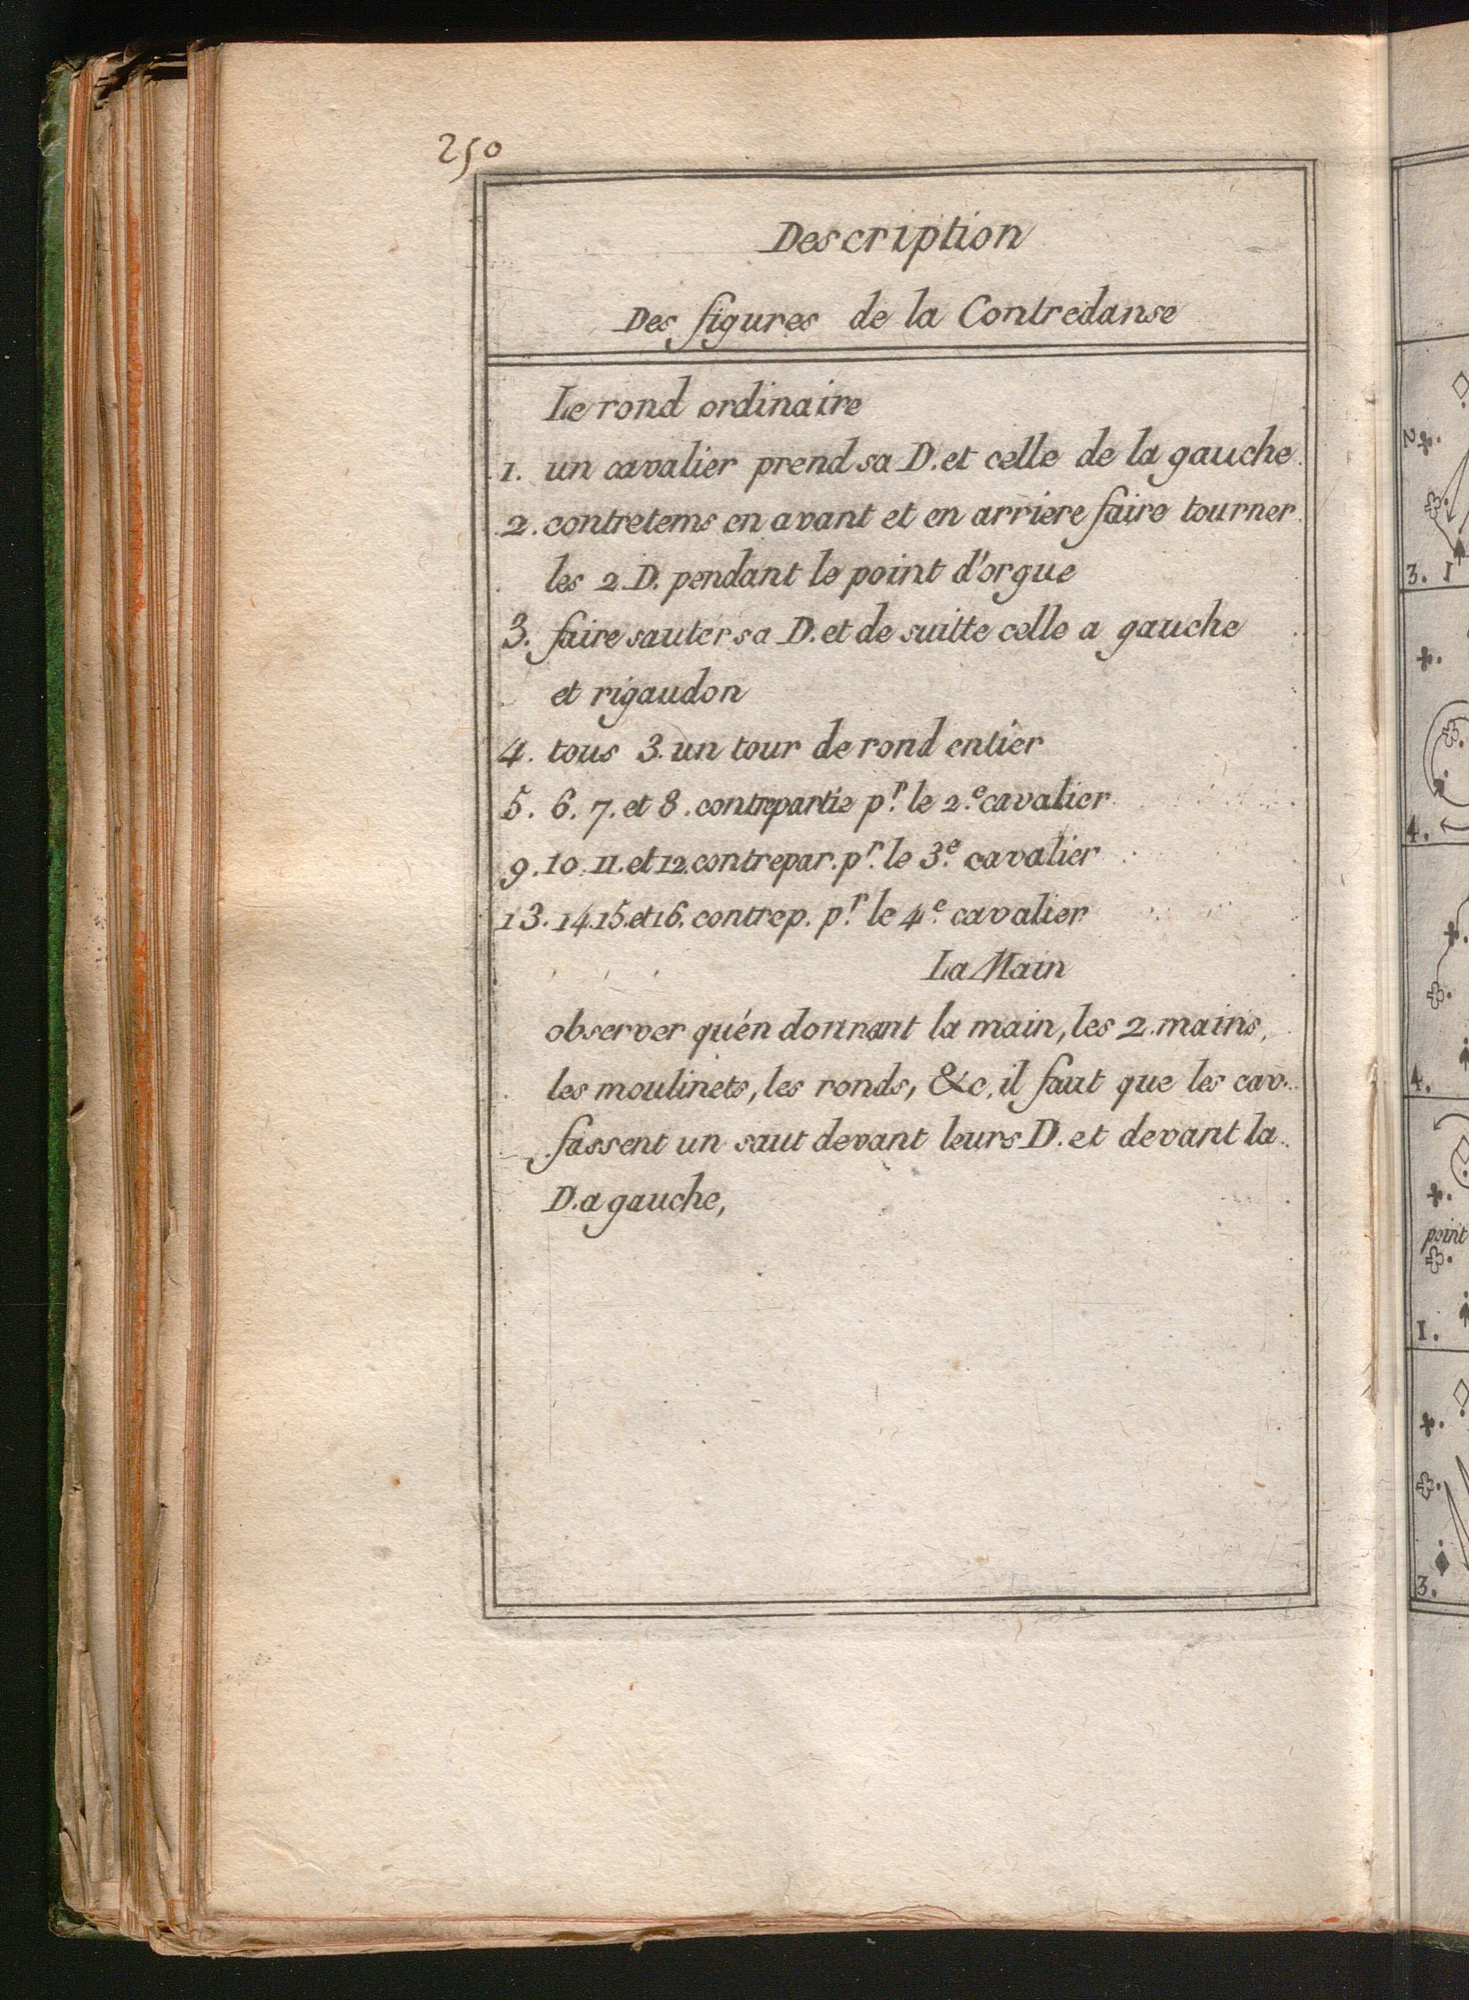 250
Description
Des figures de la Contredanse
Le rond ordinaire
1. un cavalier prend sa D. et celle de la gauche.
2. contretems en avant et en arriere faire tourner
les 2. D. pendant le point d'orgue
3. faire sauter sa D. et de suitte celle a gauche
et rigaudon
4. tous 3. un tour de rond entier
5. 6. 7. et 8. contrepartie pr. le 2.e cavalier
9. 10. 11. et 12. contrepar. pr. le 3.e cavalier
13. 14. 15. et 16. contrep. pr. le 4.e cavalier
La Main
observer qu'én donnant la main, les 2. mains,
les moulinets, les ronds, &c. il faut que les cav.
fassent un saut devant leurs D. et devant la
D. a gauche,
2
3. 1
4.
4.
point
1.
3.